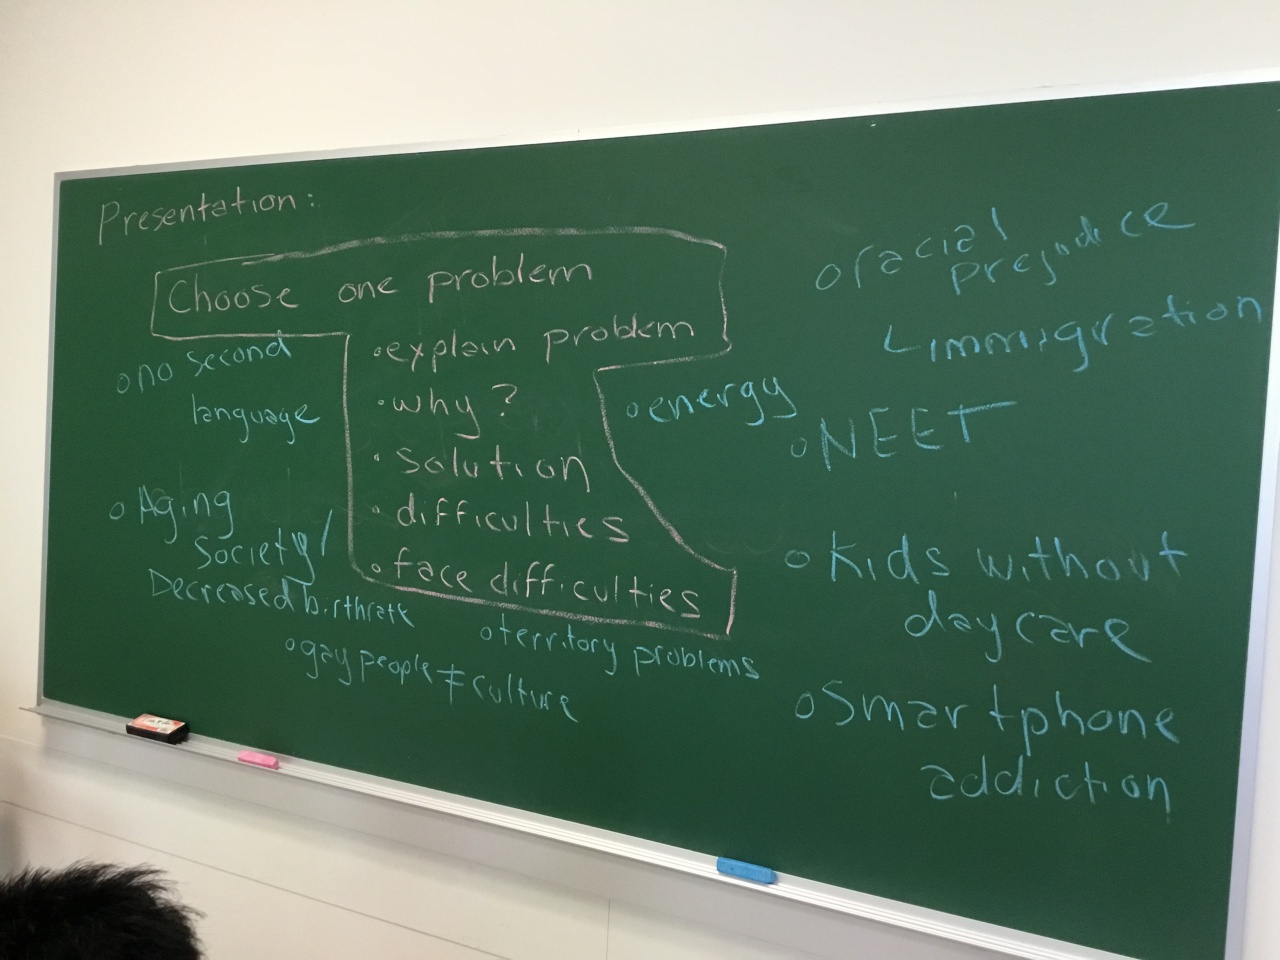 Presentation:
Choose one problem
• explain problem
• why?
• solution
• difficulties
• face difficulties
o no second
language
o Aging
Society/
Decreased birthrate
o gay people ≠ culture
o territory problems
o energy
o racial
prejudice
L immigration
o NEET
o Kids without
daycare
o Smartphone
addiction